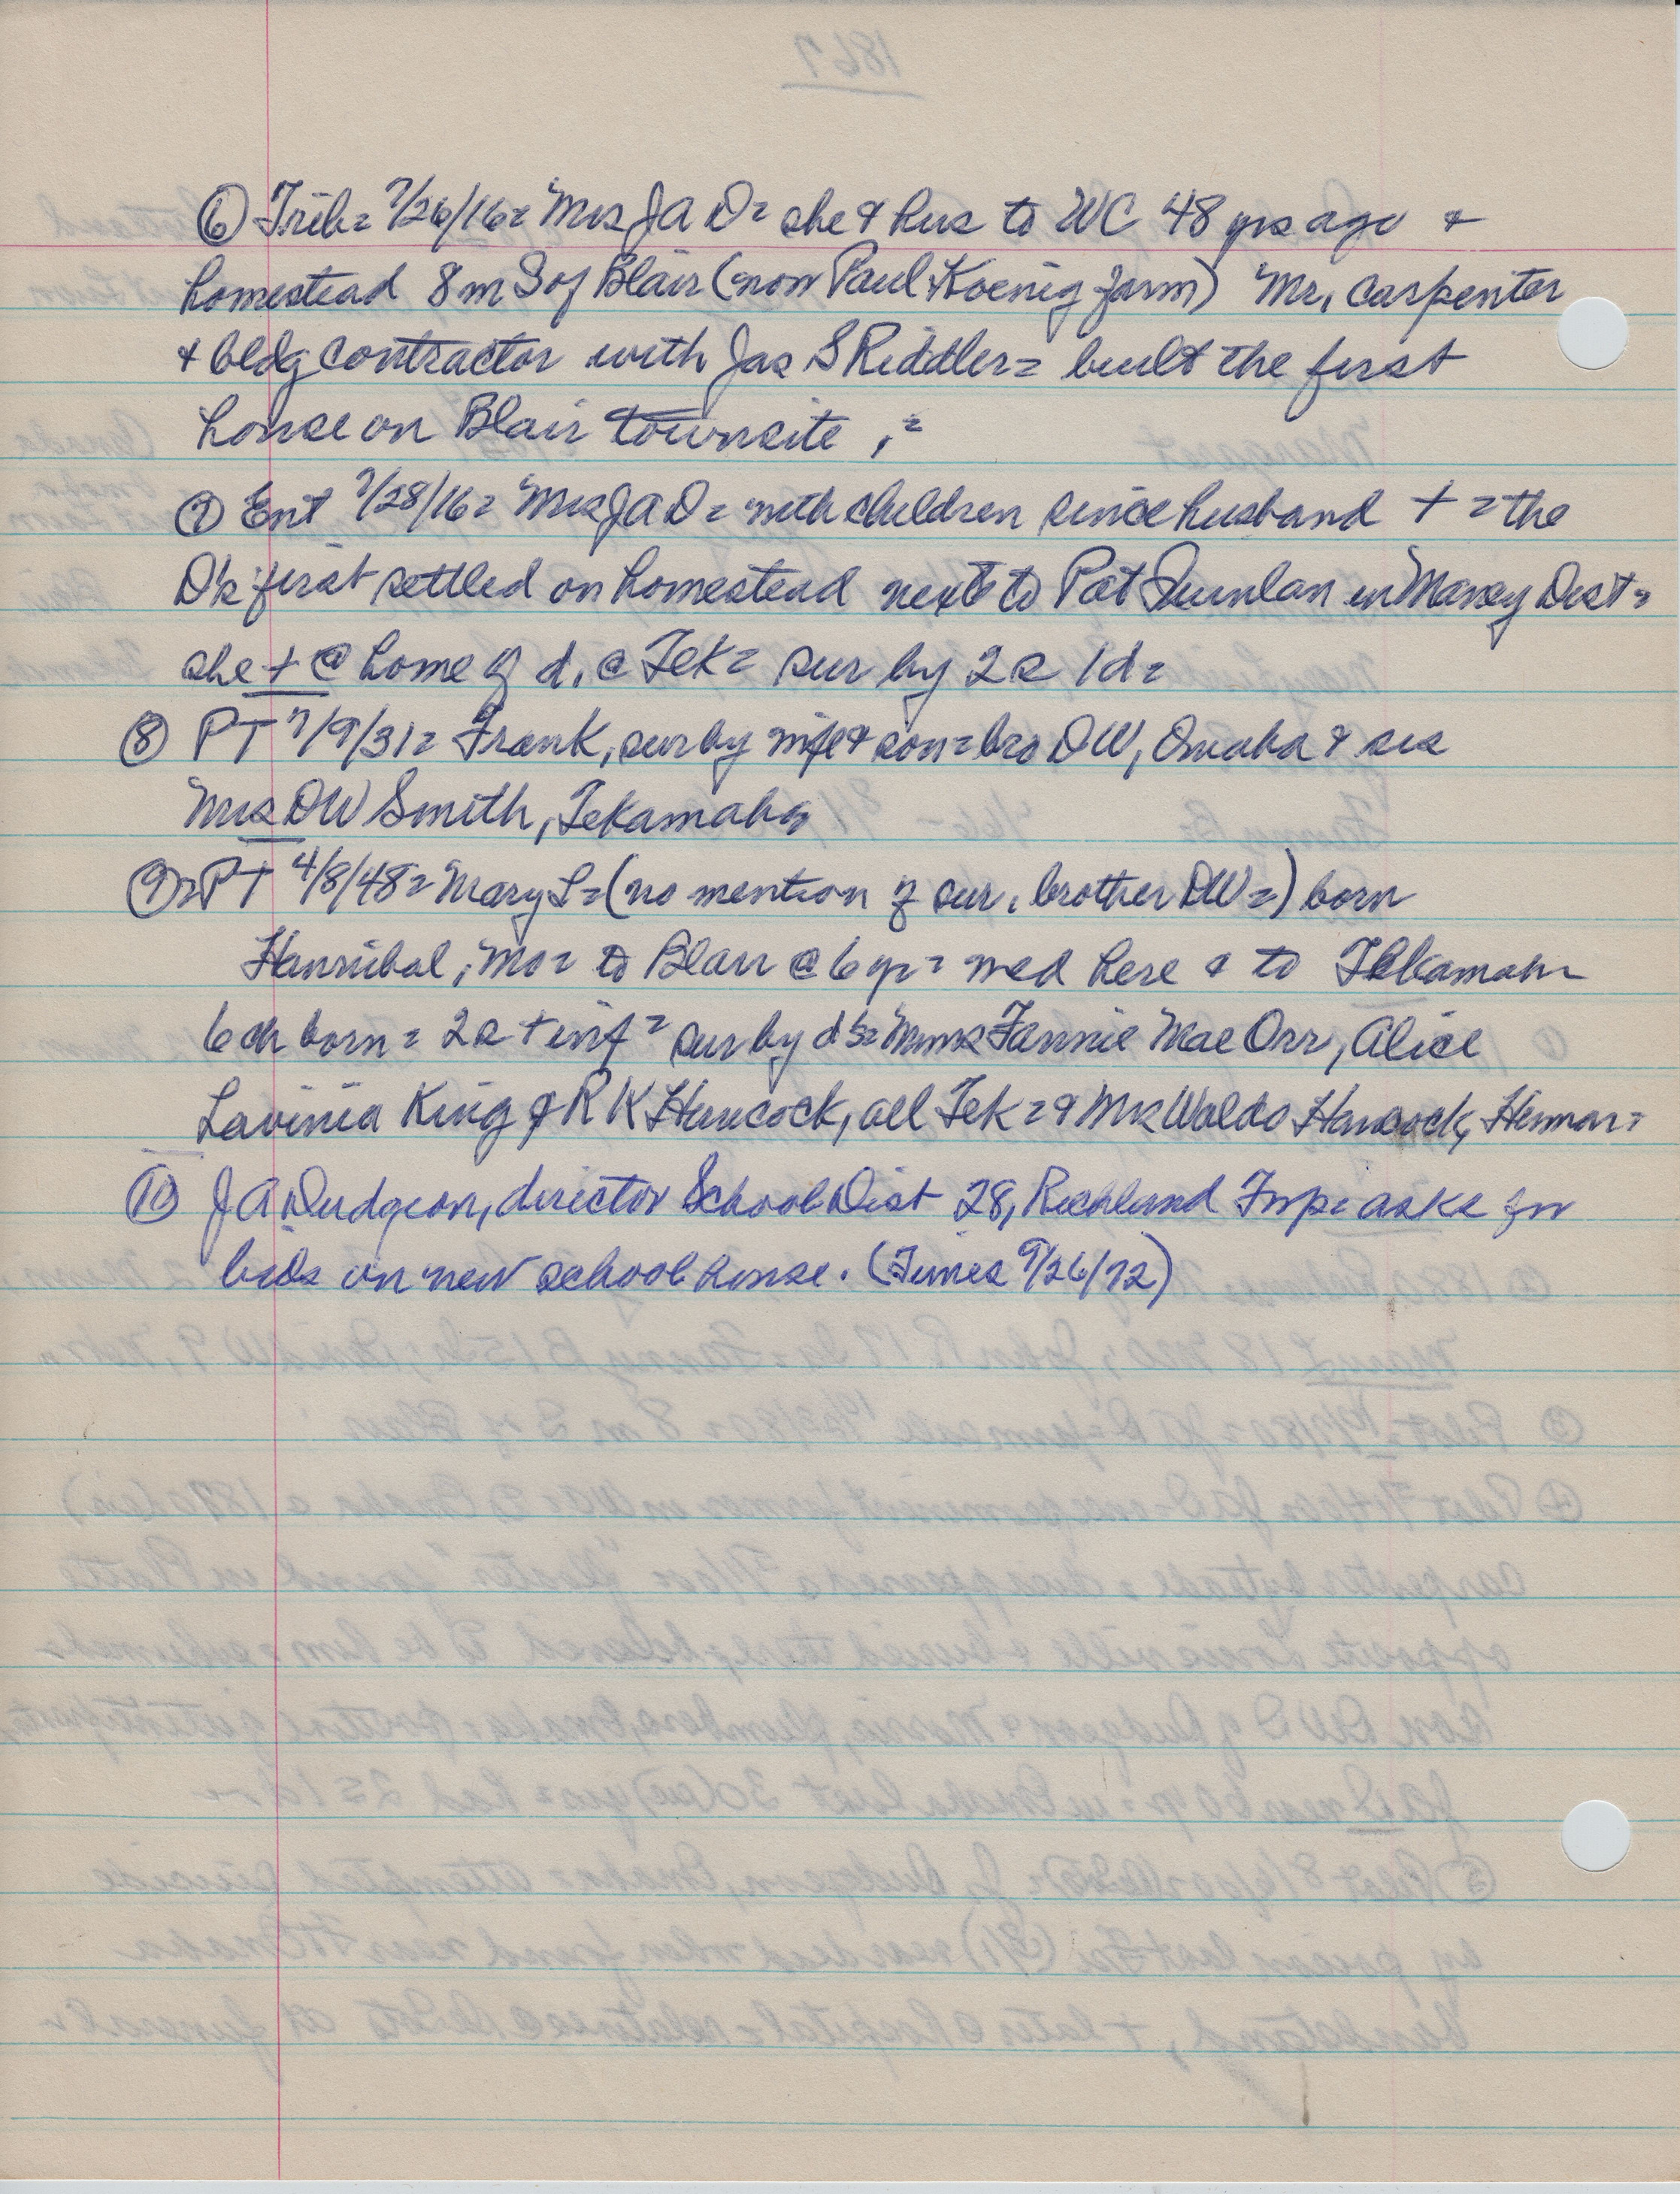 ⑥ Trib= 7/26/16= Mrs JA D= she & hus to WC 48 yrs ago &
homestead 8 m S of Blair (now Paul Koenig farm) Mr. carpenter
& bldg contractor with Jas S Riddler= built the first
house on Blair townsite, =
⑦ Ent 7/28/16= Mrs JA D= with children since husband + = the
D's first settled on homestead next to Pat Quinlan in Maney Dist=
she + @ home of d. @ Tek= sur by 2s 1d=
⑧ PT 7/9/31= Frank, sur by wife & son= bro DW, Omaha & sis
Mrs DW Smith, Tekamah
⑨ PT 4/8/48= Mary L= (no mention of sur. brother DW=) born
Hannibal, Mo= to Blair @ 6 yr= med here & to Tekamah
6 ch born= 2s + inf= sur by d's= Mmes Fannie Mae Orr, Alice
Lavinia King & R K Hancock, all Tek= & Mrs Waldo Hancock, Herman=
⑩ J A Dudgeon, director School Dist 28, Richland Twp= asks for
bids on new school house. (Times 9/26/72)